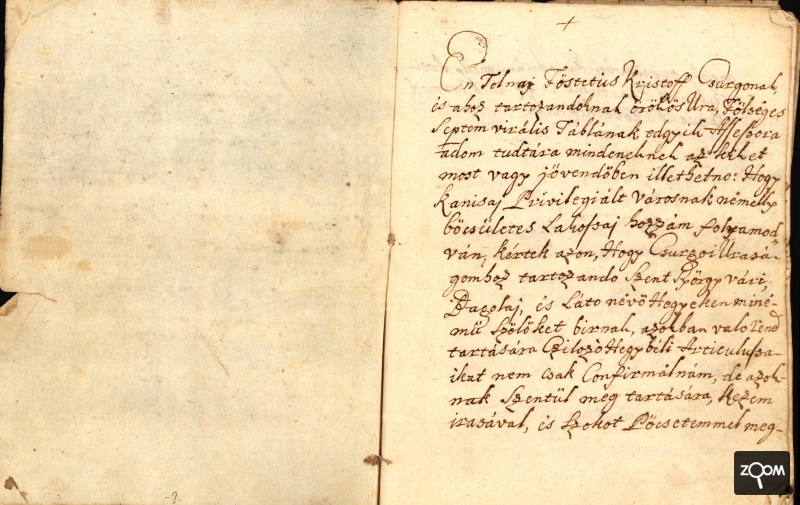 En Tolnaj Föstetics Kristoff Csurgonak,
és ahoz tartozandoknak örökös Ura, Fölséges
Septem virális Táblának edgyik Assessora
adom tudtára mindeneknek az kiket
most vagy jövendőben illethetne: Hogy
Kanisaj Privilegiált Városnak némelly
böcsületes Lakossaj hozzám folyamod
ván, kértek azon, Hogy Csurgoi Urasá-
gomhoz tartozando Szent György vári,
és Láto nevö Hegyeken miné-
mü Szölöket birnak, azokban valo rend
tartására Czilozo Hegybéli Articulussa-
ikat nem csak Confirmálnám, de azok-
nak Szentül meg tartására, kezem
irasával, és Szokot Pöcsetemmel meg-
-2-
ZOOM